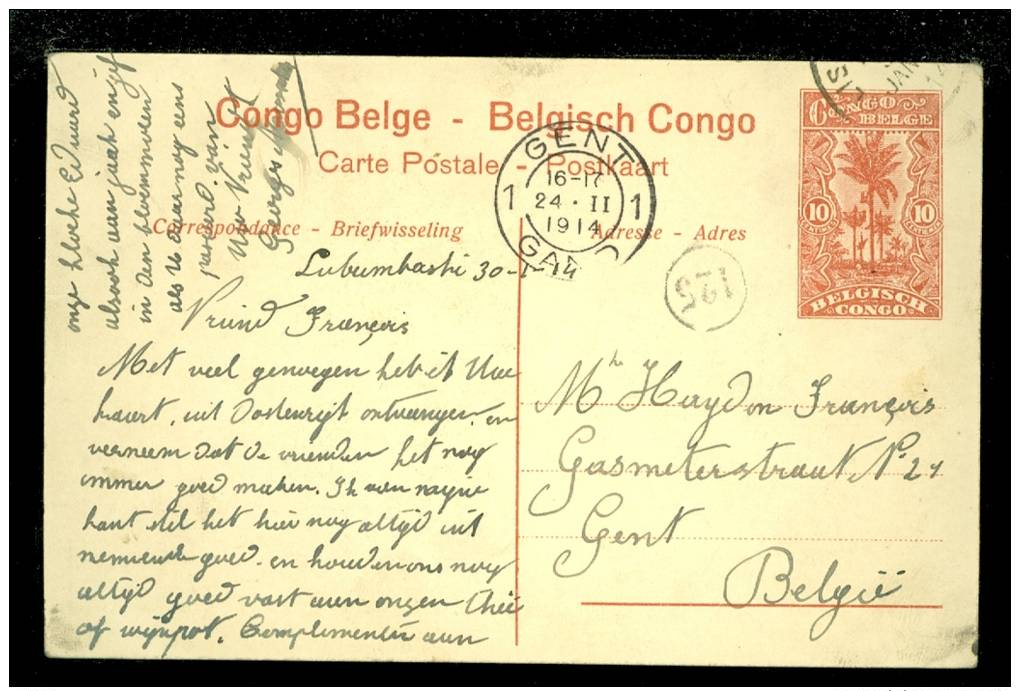 Congo Belge - Belgisch Congo
Carte Postale - Postkaart
Correspondance - Briefwisseling
Adresse - Adres
CONGO
BELGE
10 10
BELGISCH
CONGO
GENT
16-17
1 24 · II 1
1914
125
JAN
Lubumbashi 30-1-14
Vriend François
Met veel genoegen heb ik Uwe
kaart, uit Oostenrijk ontvangen, en
verneem dat de vrienden het nog
immer goed maken. Ik aan mijne
kant stel het hier nog altijd uit
goed en houden ons nog
altijd goed vast aan onzen Thée
of wijnpot. Complimenten aan
onze Edward
alsook aan
in den
als U daar nog eens
Uw Vriend
Georges
Mr Haydon François
Gasmeterstraat No 21
Gent
België